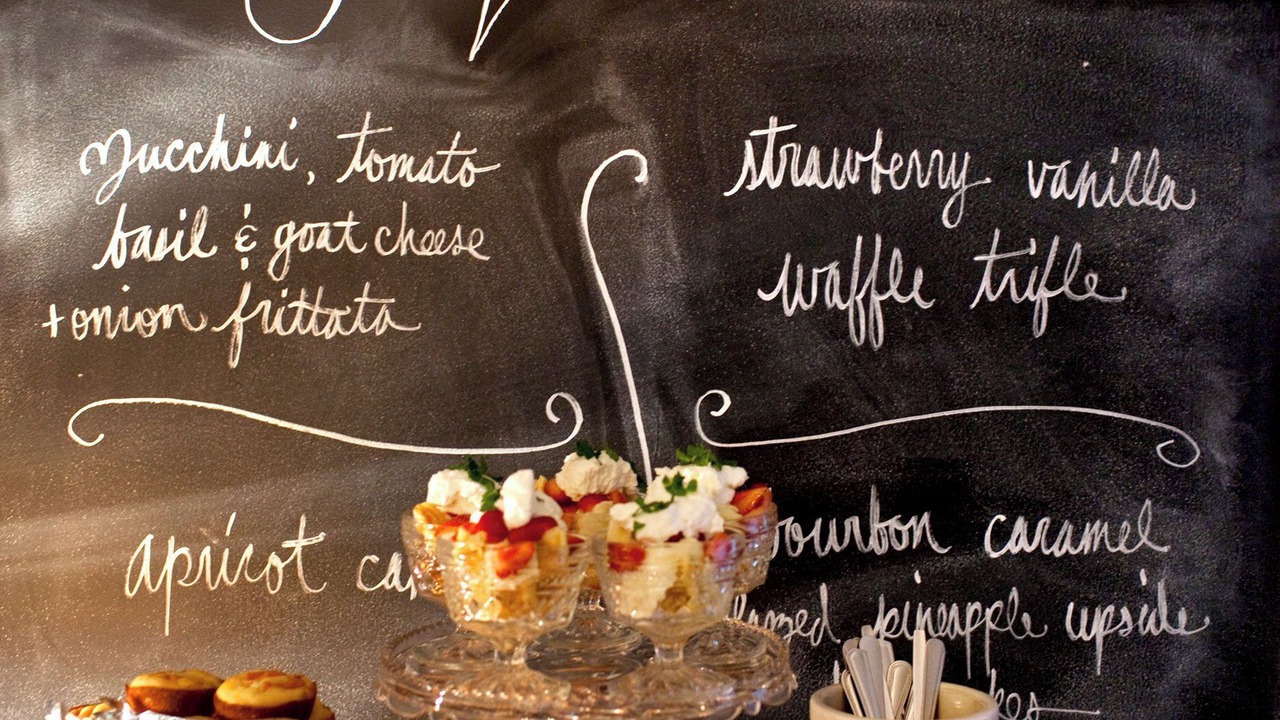 Zucchini, tomato
basil & goat cheese
+ onion frittata
strawberry vanilla
waffle trifle
apricot
bourbon caramel
pineapple upside